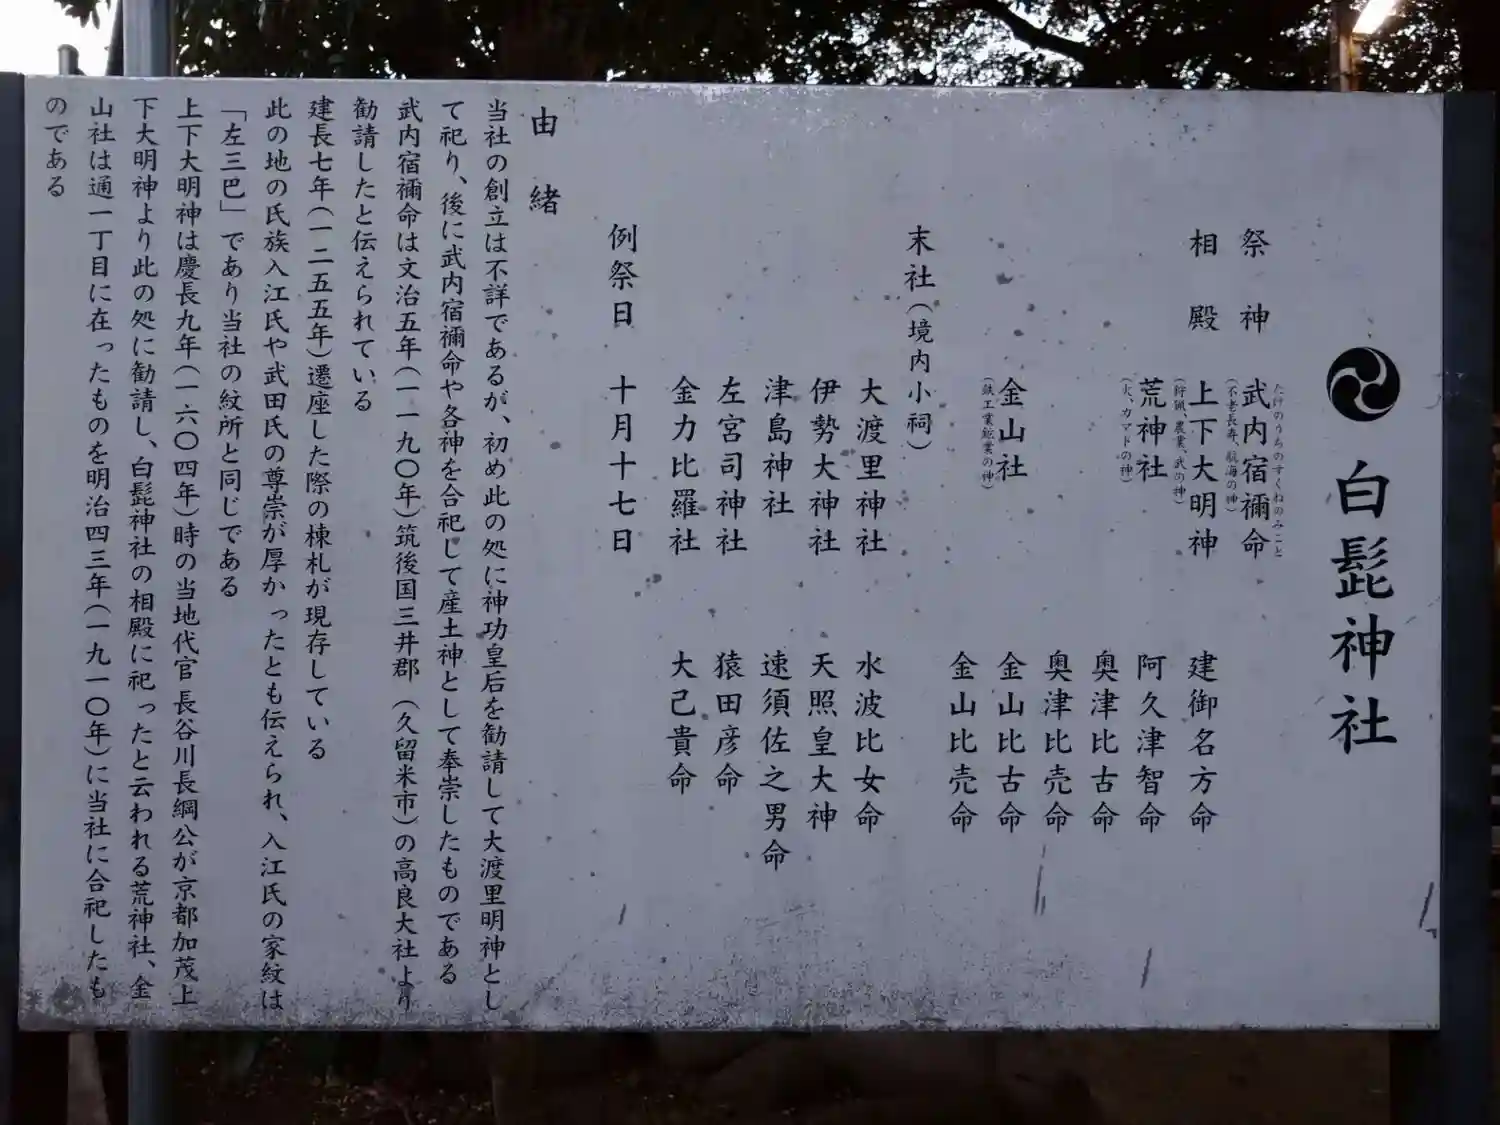 白髭神社
祭神
武内宿禰命
たけのうちのすくねのみこと
(不老長寿、航海の神)
相殿
上下大明神
建御名方命
(狩猟、農業、武の神)
荒神社
阿久津智命
(火、カマドの神)
奥津比古命
奥津比売命
金山社
金山比古命
(鉄工業鉱業の神)
金山比売命
末社(境内小祠)
大渡里神社
水波比女命
伊勢大神社
天照皇大神
津島神社
速須佐之男命
左宮司神社
猿田彦命
金力比羅社
大己貴命
例祭日
十月十七日
由緒
当社の創立は不詳であるが、初め此の処に神功皇后を勧請して大渡里明神とし
て祀り、後に武内宿禰命や各神を合祀して産土神として奉崇したものである
武内宿禰命は文治五年(一一九〇年)筑後国三井郡(久留米市)の高良大社より
勧請したと伝えられている
建長七年(一二五五年)遷座した際の棟札が現存している
此の地の氏族入江氏や武田氏の尊崇が厚かったとも伝えられ、入江氏の家紋は
「左三巴」であり当社の紋所と同じである
上下大明神は慶長九年(一六〇四年)時の当地代官長谷川長綱公が京都加茂上
下大明神より此の処に勧請し、白髭神社の相殿に祀ったと云われる荒神社、金
山社は通一丁目に在ったものを明治四三年(一九一〇年)に当社に合祀したも
のである